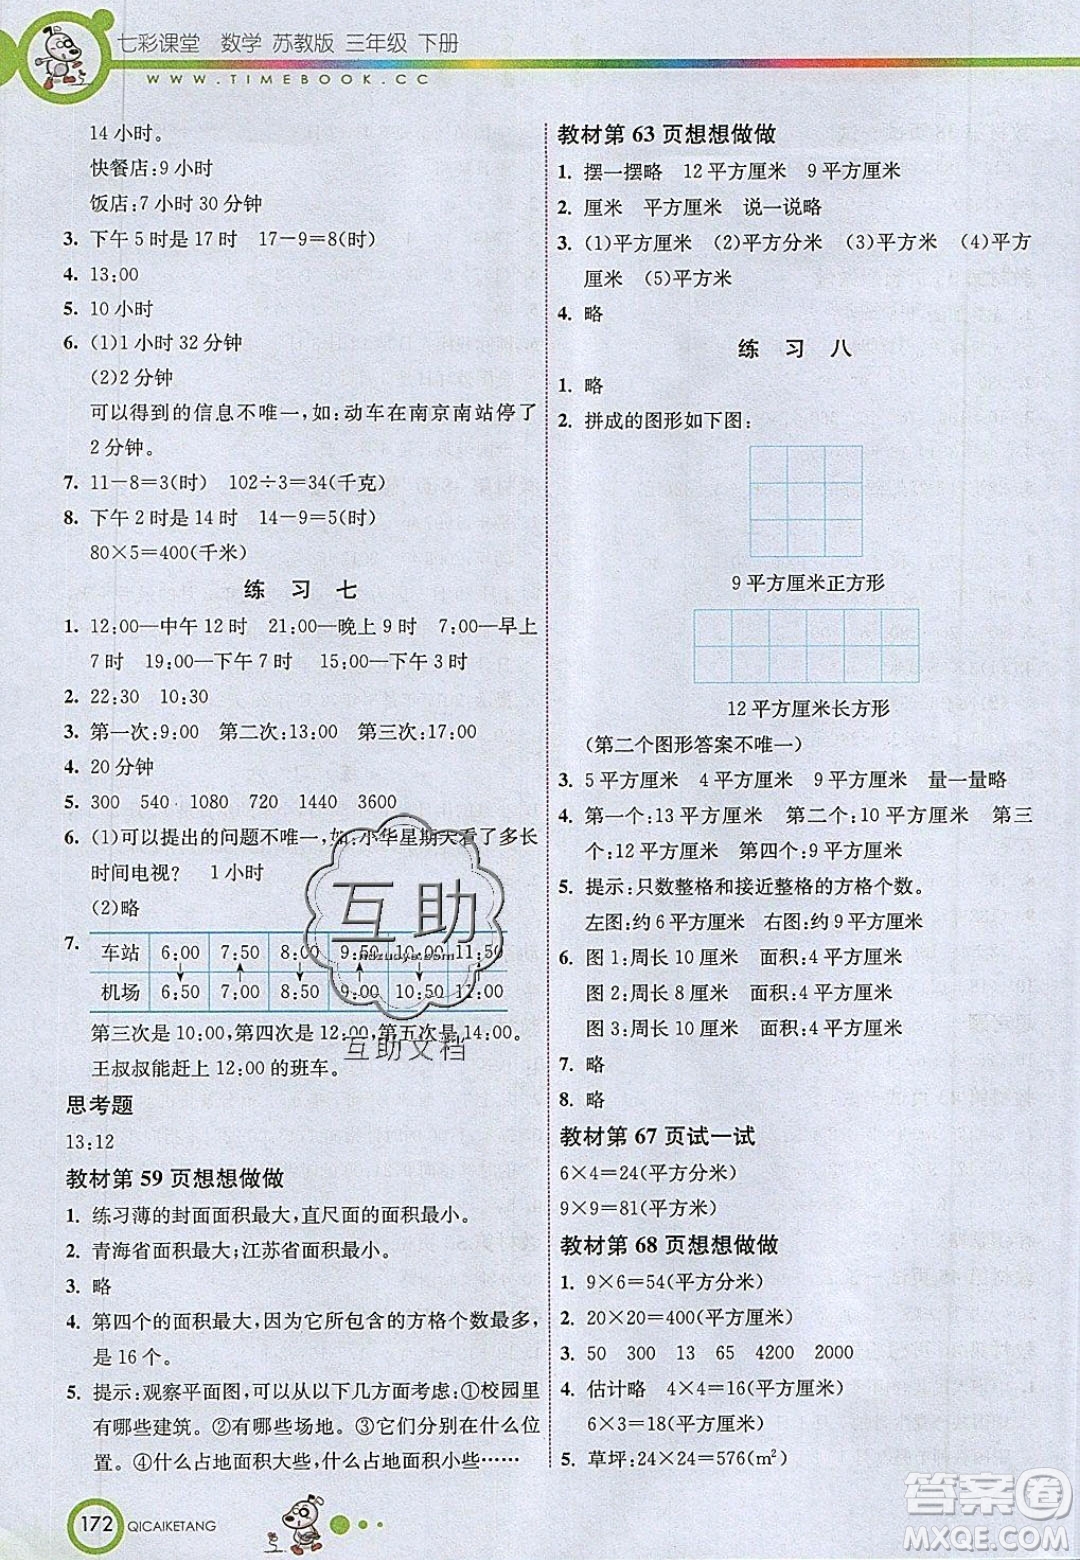 七彩课堂 数学 苏教版 三年级 下册
WWW.TIMEBOOK.CC
14 小时。
快餐店:9 小时
饭店:7 小时 30 分钟
3. 下午 5 时是 17 时 17-9=8(时)
4. 13:00
5. 10 小时
6. (1)1 小时 32 分钟
(2)2 分钟
可以得到的信息不唯一,如:动车在南京南站停了
2 分钟。
7. 11-8=3(时) 102÷3=34(千克)
8. 下午 2 时是 14 时 14-9=5(时)
80×5=400(千米)
练 习 七
1. 12:00—中午 12 时 21:00—晚上 9 时 7:00—早上
7 时 19:00—晚上 7 时 15:00—下午 3 时
2. 22:30 10:30
3. 第一次:9:00 第二次:13:00 第三次:17:00
4. 20 分钟
5. 300 540 1080 720 1440 3600
6. (1)可以提出的问题不唯一,如:小华星期天看了多长
时间电视? 1 小时
(2)略
7. 车站 6:00 7:50 8:00 9:50 10:00 11:50
机场 6:50 7:00 8:50 9:00 10:50 12:00
第三次是 10:00,第四次是 12:00,第五次是 14:00。
王叔叔能赶上 12:00 的班车。
思考题
13:12
教材第 59 页想想做做
1. 练习薄的封面面积最大,直尺面的面积最小。
2. 青海省面积最大;江苏省面积最小。
3. 略
4. 第四个的面积最大,因为它所包含的方格个数最多,
是 16 个。
5. 提示:观察平面图,可以从以下几方面考虑:①校园里
有哪些建筑。②有哪些场地。③它们分别在什么位
置。④什么占地面积大些,什么占地面积小些……
172 QICAIKETANG
教材第 63 页想想做做
1. 摆一摆略 12 平方厘米 9 平方厘米
2. 厘米 平方厘米 说一说略
3. (1)平方厘米 (2)平方分米 (3)平方米 (4)平方
厘米 (5)平方米
4. 略
练 习 八
1. 略
2. 拼成的图形如下图:
9 平方厘米正方形
12 平方厘米长方形
(第二个图形答案不唯一)
3. 5 平方厘米 4 平方厘米 9 平方厘米 量一量略
4. 第一个:13 平方厘米 第二个:10 平方厘米 第三
个:12 平方厘米 第四个:9 平方厘米
5. 提示:只数整格和接近整格的方格个数。
左图:约 6 平方厘米 右图:约 9 平方厘米
6. 图 1:周长 10 厘米 面积:4 平方厘米
图 2:周长 8 厘米 面积:4 平方厘米
图 3:周长 10 厘米 面积:4 平方厘米
7. 略
8. 略
教材第 67 页试一试
6×4=24(平方分米)
9×9=81(平方米)
教材第 68 页想想做做
1. 9×6=54(平方分米)
2. 20×20=400(平方厘米)
3. 50 300 13 65 4200 2000
4. 估计略 4×4=16(平方厘米)
6×3=18(平方厘米)
5. 草坪:24×24=576(m²)
互助
hdzuoye.com
互助文档
答案圈
MXQE.COM